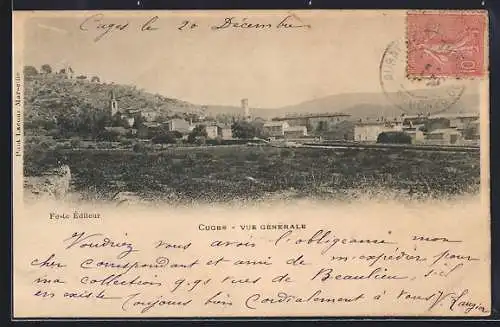 Cuges le 20 Décembre
10
Phot Lacour Marseille
Feste Éditeur
CUGES - VUE GÉNÉRALE
Voudriez vous avoir l'obligeance mon
cher correspondant et ami de m'expédier pour
ma collection q.qs vues de Beaulieu, s'il
en existe Toujours bien Cordialement à vous